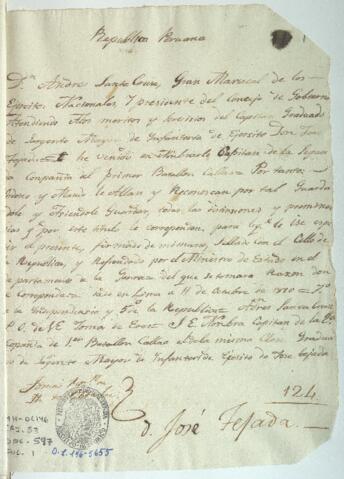 Republica Peruana
Dn. Andres Santa Cruz, Gran Mariscal de los
Exercitos Nacionales, y Presidente del Consejo de Gobierno
Atendiendo a los meritos y servicios del Capitan Graduado
de Sargento Mayor de Infanteria de Exercito Don Jose
Tejada he venido en Capitan de la Segunda
Compañia del primer Batallon Callao Por tanto:
Ordeno y Mando le Allan y Reconoscan por tal Guarda
dole y Aciendole Guardar, todas las distinciones y preeminen
cias y por este titulo le corresponden, para lo qe. le ise espe
dir el presente, firmado de mi mano, Sellado con el Sello de
la Republica, y Refrendado por el Ministro de Estado en el
departamento de la Guerra del que se tomara Razon don
de corresponda dado en Lima a 11 de Octubre de
de la Independencia y 5 de la Republica Andres Santa Cruz
P. O. de S E Tomas de Eres S. E. Nombra Capitan de la 2a.
Compañia de 1er Batallon Callao a la misma Clase Gradua
do de Sargento Mayor de Infanteria de Exercito Dn Jose Tejada
124
D. José Tejada